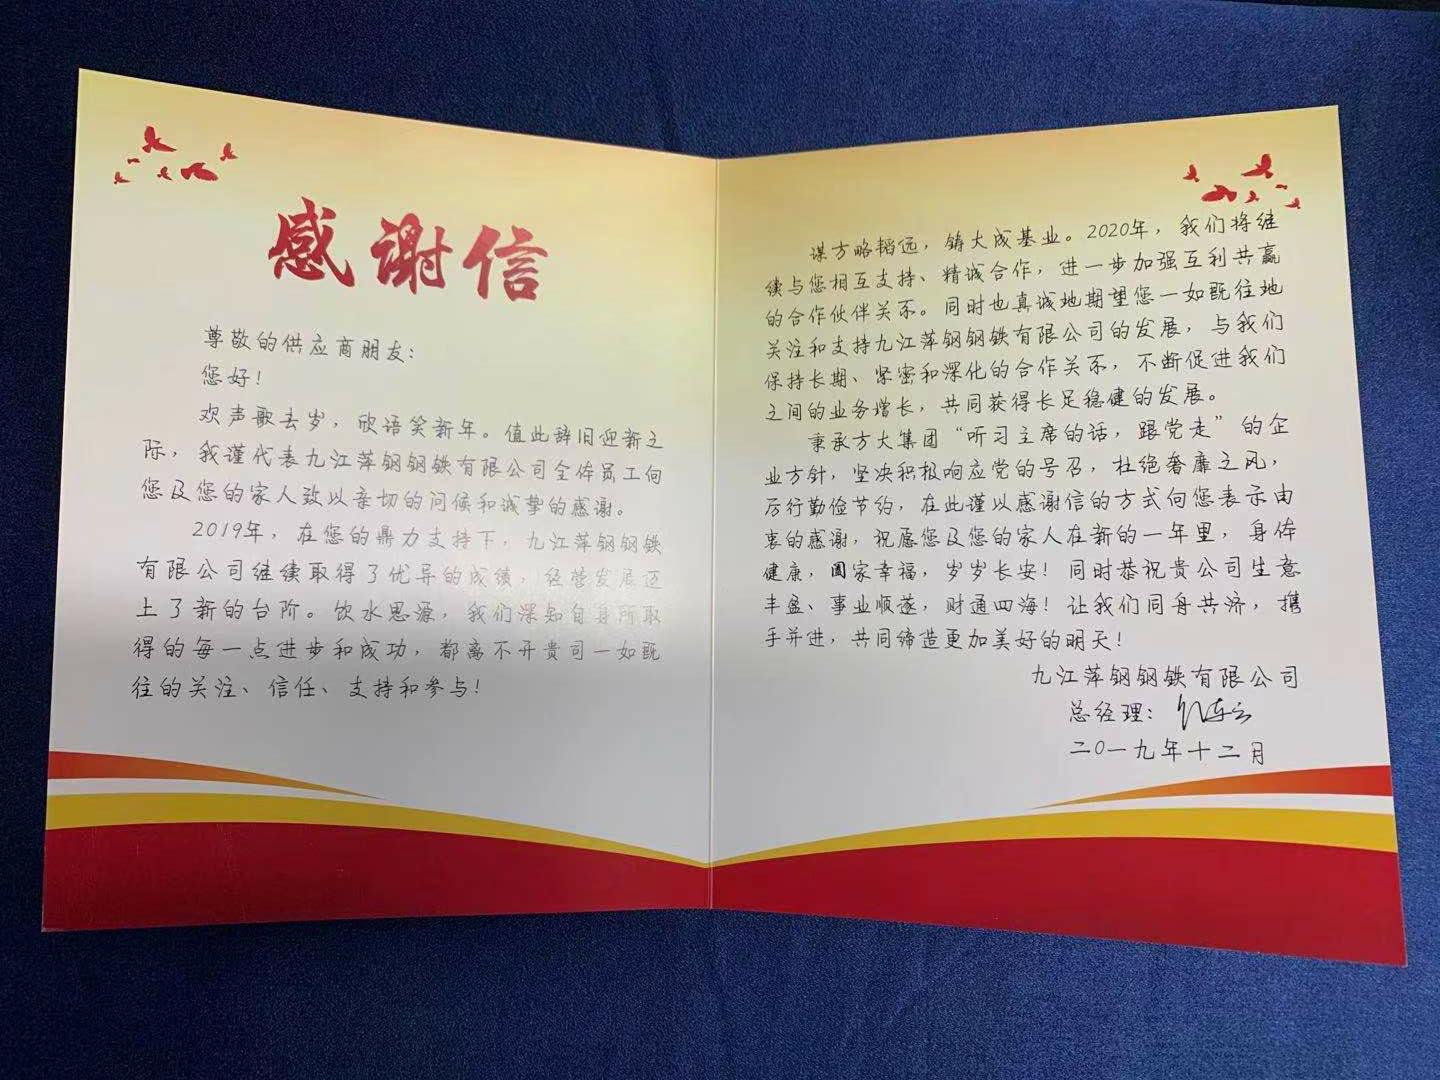 感谢信
尊敬的供应商朋友：
您好！
欢声歌去岁，欣语笑新年。值此辞旧迎新之
际，我谨代表九江萍钢钢铁有限公司全体员工向
您及您的家人致以亲切的问候和诚挚的感谢。
2019年，在您的鼎力支持下，九江萍钢钢铁
有限公司继续取得了优异的成绩，经营发展迈
上了新的台阶。饮水思源，我们深知自身所取
得的每一点进步和成功，都离不开贵司一如既
往的关注、信任、支持和参与！
谋方略韬远，铸大成基业。2020年，我们将继
续与您相互支持、精诚合作，进一步加强互利共赢
的合作伙伴关系。同时也真诚地期望您一如既往地
关注和支持九江萍钢钢铁有限公司的发展，与我们
保持长期、紧密和深化的合作关系，不断促进我们
之间的业务增长，共同获得长足稳健的发展。
秉承方大集团“听习主席的话，跟党走”的企
业方针，坚决积极响应党的号召，杜绝奢靡之风，
厉行勤俭节约，在此谨以感谢信的方式向您表示由
衷的感谢，祝愿您及您的家人在新的一年里，身体
健康，阖家幸福，岁岁长安！同时恭祝贵公司生意
丰盈、事业顺遂，财通四海！让我们同舟共济，携
手并进，共同缔造更加美好的明天！
九江萍钢钢铁有限公司
总经理：
二〇一九年十二月